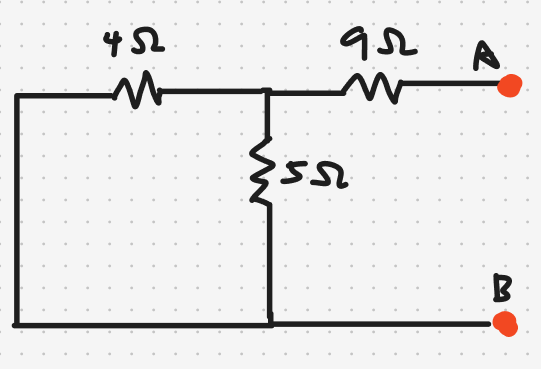 4 Ω
9 Ω
A
5 Ω
B